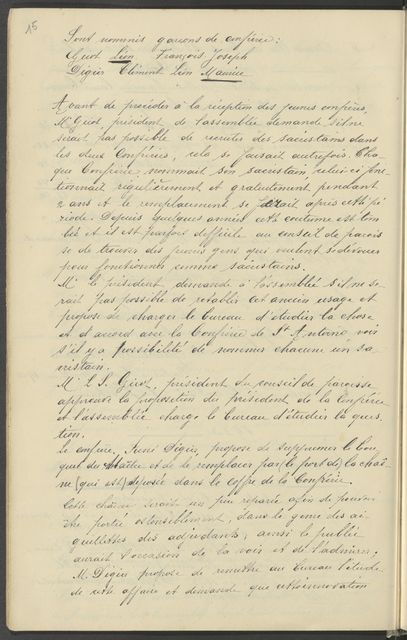 15
Sont nommés garçons de confrérie:
Girot Léon François Joseph
Digier Clément Léon Maurice
Avant de procéder à la réception des jeunes confrères,
Mr Girot, président de l'assemblée demande s'il ne
serait pas possible de recruter des sacristains dans
les deux Confréries, cela se faisait autrefois. Cha-
que Confrérie nommait son sacristain, celui-ci fonc-
tionnait régulièrement et gratuitement pendant
2 ans et le remplacement se ferait après cette pé-
riode. Depuis quelques années cette coutume est tom-
bée et il est parfois difficile au conseil de parois
se de trouver des jeunes gens qui veulent se dévouer
pour fonctionner comme sacristains.
Mr le président, demande à l'assemblée s'il ne se-
rait pas possible de rétablir cet ancien usage et
propose de charger le bureau d'étudier la chose
et d'accord avec la Confrérie de St Antoine voir
s'il y a possibilité de nommer chacune un sa-
cristain.
Mr L. S. Girot, président du conseil de paroisse
approuve la proposition du président de la Confrérie
et l'assemblée charge le bureau d'étudier la ques-
tion.
Le confrère, René Digier, propose de supprimer le bou-
quet du Maître et de le remplacer par le port de la chaî-
ne (qui est) déposée dans le coffre de la Confrérie.
Cette chaîne serait un peu réparée afin de pouvoir
être portée ostensiblement, dans le genre des ai-
guillettes des adjudants, ainsi le public
aurait l'occasion de la voir et de l'admirer.
M. Digier propose de remettre au bureau l'étude
de cette affaire et demande que cette innovation